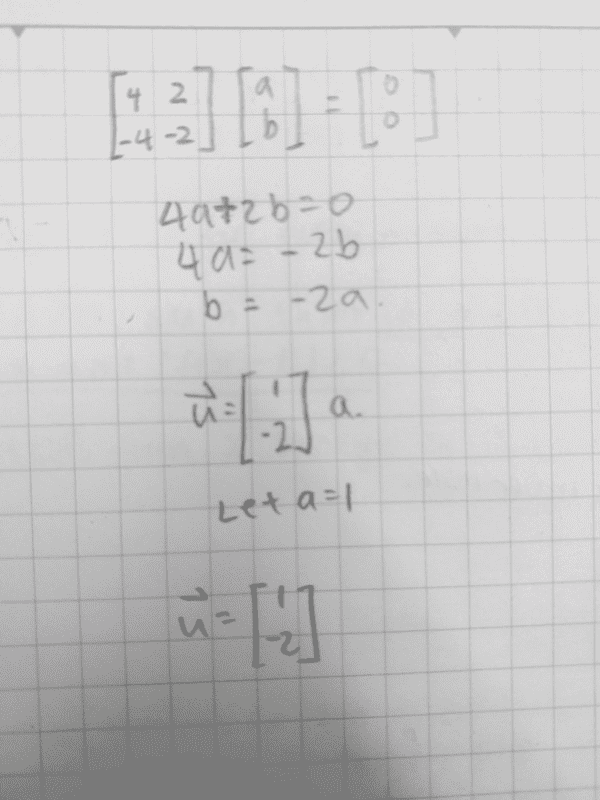 [4 2 -4 -2] [a b] = [0 0]
4a+2b=0
4a=-2b
b = -2a.
u⃗=[1 -2] a.
Let a=1
u⃗=[1 -2]